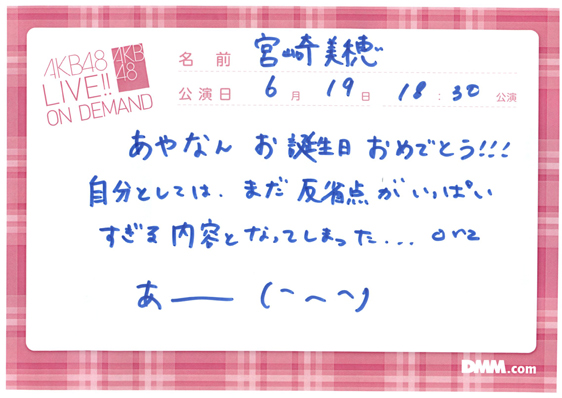 AKB48
LIVE!!
ON DEMAND
AKB
48
名前 宮崎美穂
公演日 6月 19日 18:30 公演
あやなん お誕生日 おめでとう!!!
自分としては、まだ 反省点がいっぱい
すぎる 内容となってしまった... orz
あー (ーーー)
DMM.com